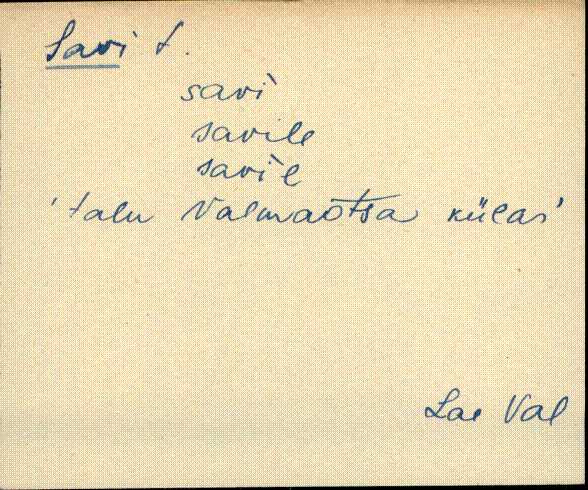 Savi t.
savi
savile
savil
'talu Valmaotsa külas'
Lai Val